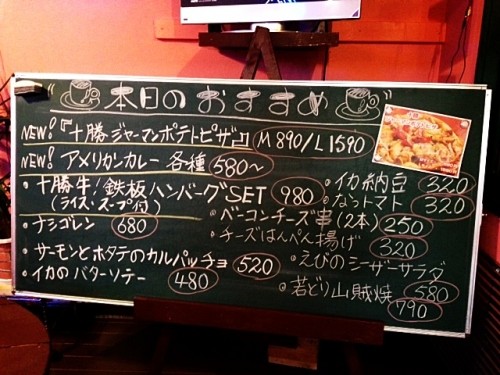 本日のおすすめ
NEW!『十勝ジャーマンポテトピザ』 M890/L1590
NEW! アメリカンカレー 各種 580～
・十勝牛!鉄板ハンバーグSET 980
(ライス・スープ付)
・ナシゴレン 680
・サーモンとホタテのカルパッチョ 520
・イカのバターソテー 480
・イカ納豆 320
・なっトマト 320
・ベーコンチーズ串(2本) 250
・チーズはんぺん揚げ 320
・えびのシーザーサラダ 580
・若どり山賊焼 790